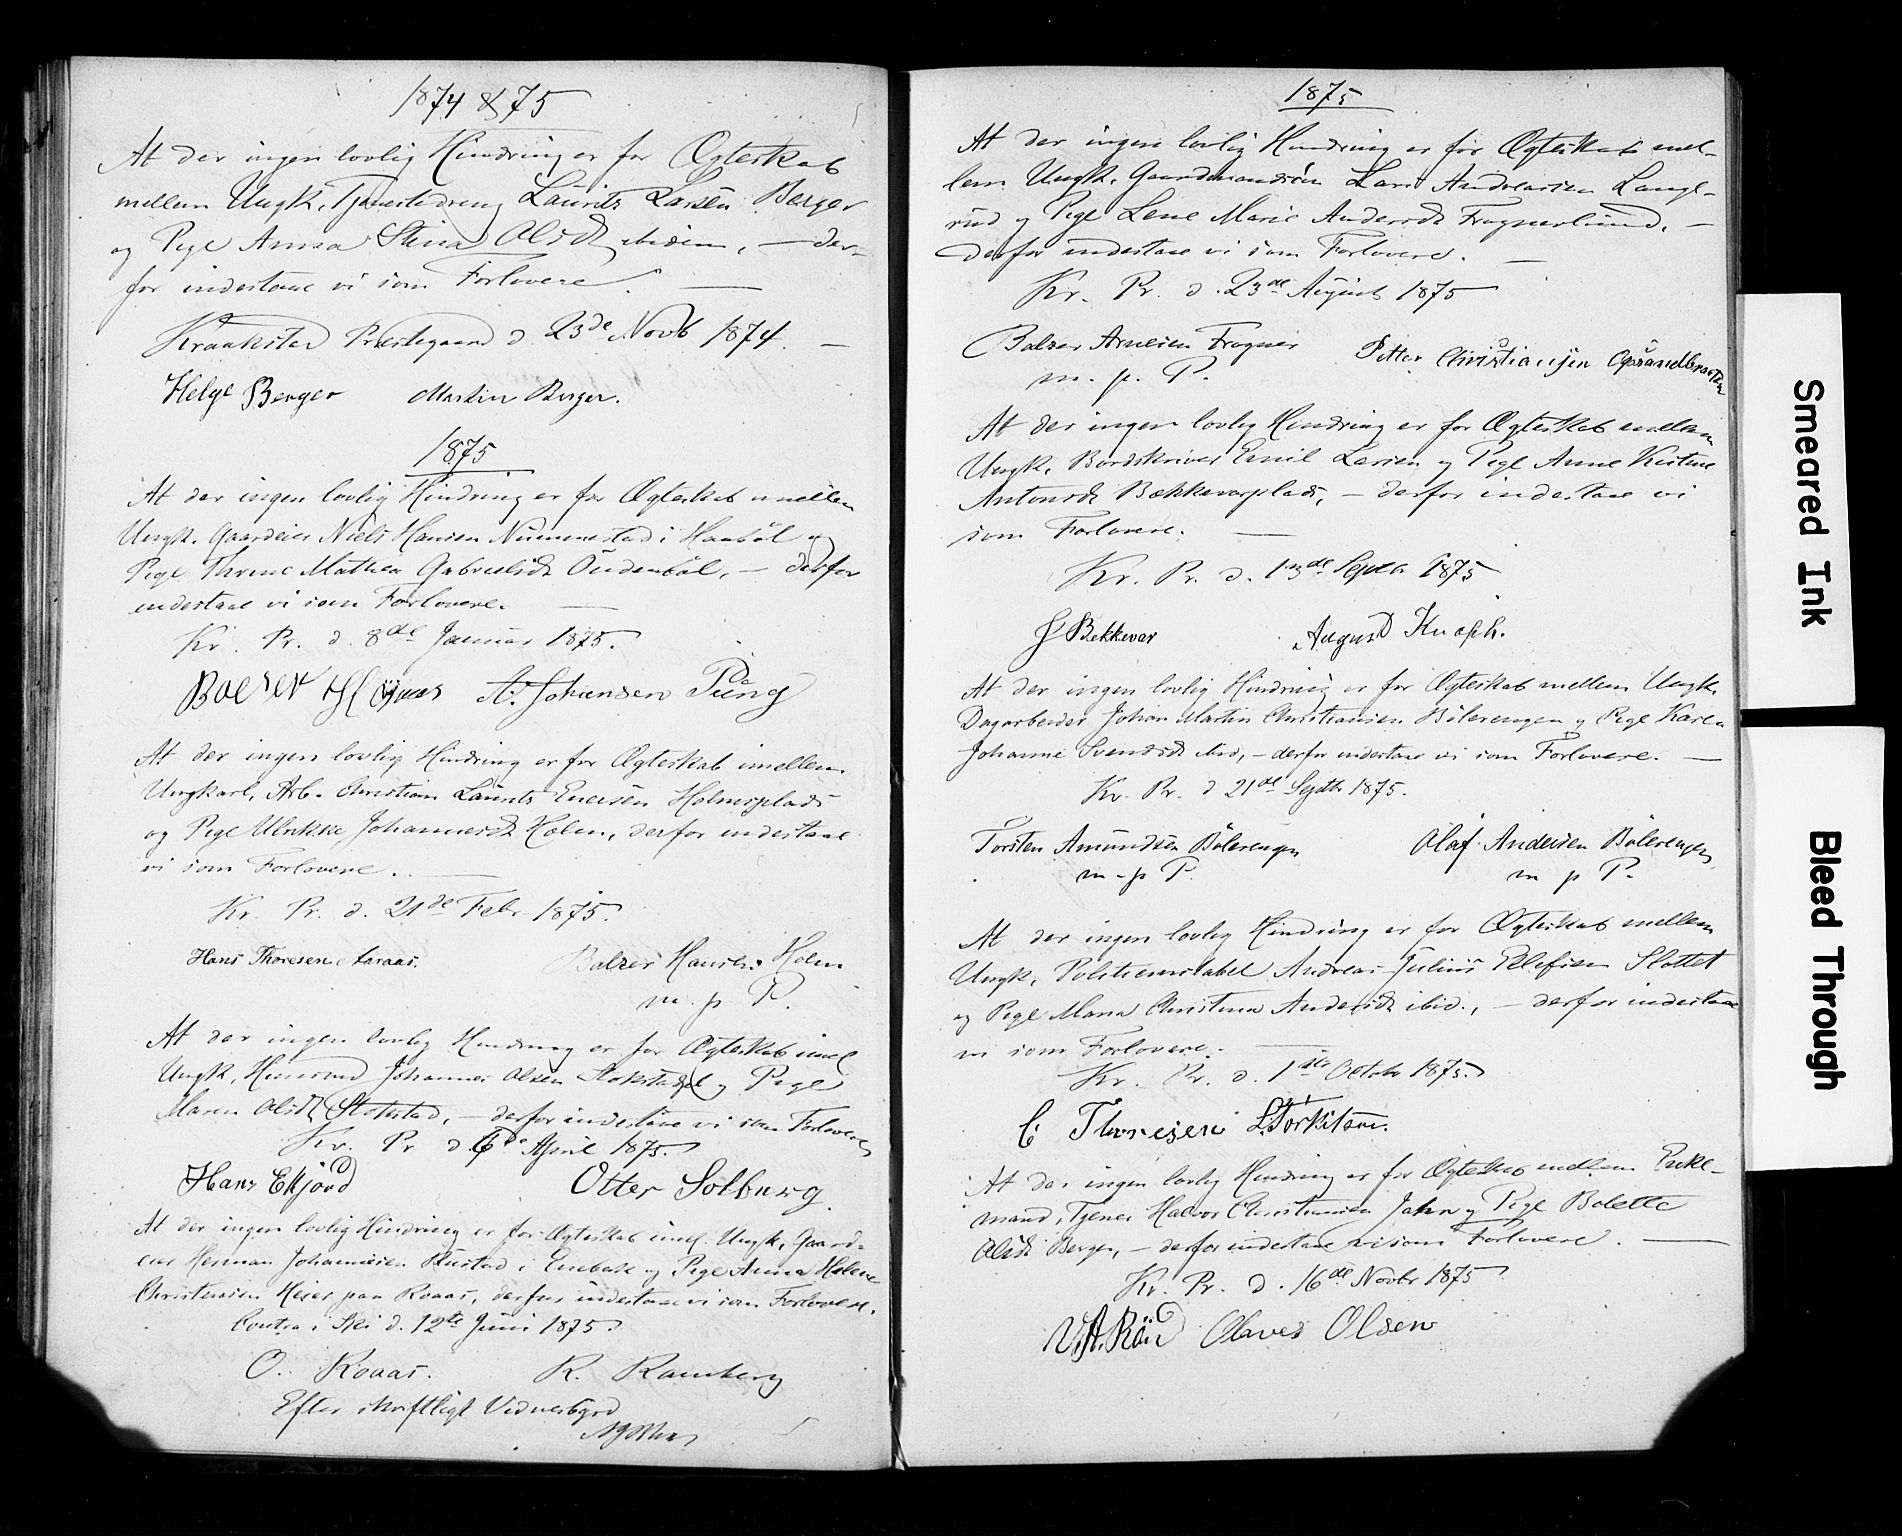 1874 & 75
At der ingen lovlig Hindring er for Ægteskab
mellem Ungk. Tjenestedreng Laurits Larsen Berger
og Pige Anna Stina Olsdt ibidem, — der-
for indestaae vi som Forlovere. —
Kraakstad Præstegaard d. 23de Novb 1874. —
Helge Berger Martin Berger.
1875.
At der ingen lovlig Hindring er for Ægteskab imellem
Ungk. Gaardeier Niels Hansen Nummestad i Haabøl og
Pige Thrine Mathea Gabrielsdt Oudenbøl, — derfor
indestaae vi som Forlovere. —
Kr. Pr. d. 8de Januar 1875.
A. Johansen Pung
At der ingen lovlig Hindring er for Ægteskab imellem
Ungkarl, Arb. Christian Laurits Enersen Holmsplads
og Pige Ulrikke Johannesdt Holm, derfor indestaae
vi som Forlovere. —
Kr. Pr. d. 21de Febr 1875.
Hans Thoresen Aaraas. Balzer Hansen Holm
m. p. P.
At der ingen lovlig Hindring er for Ægteskab imel
Ungk, Huusmand Johannes Olsen Stokstad og Pige
Maren Olsdt Stokstad, — derfor indestaae vi som Forlovere
Kr. Pr d. 6te April 1875.
Hans Ekjord Otter Solberg.
At der ingen lovlig Hindring er for Ægteskab imel. Ungk, Gaard-
eier Herman Johannesen Hustad i Enebak og Pige Anna Helene
Christensen Heier paa Roaas, derfor indestaae vi som Forlovere.
Contra i Ski d. 12te Juni 1875.
O. Roaas. R. Ramberg
Efter skriftligt Vidnesbyrd
1875
At der ingen lovlig Hindring er for Ægteskab mel-
lem Ungk. Gaardmandssøn Lars Andreasen Lange-
rud og Pige Lene Marie Andersdt Frognerlund. —
derfor indestaae vi som Forlovere. —
Kr. Pr. d. 23de August 1875
Balzer Arnesen Frogner Petter Christiansen Opsandbraaten
m. p. P.
At der ingen lovlig Hindring er for Ægteskab mellem
Ungk. Bordskriver Emil Larsen og Pige Anne Kirstine
Antonsdt Bekkevarplads, — derfor indestaae vi
som Forlovere. —
Kr. Pr. d. 13de Septbr 1875
J Bekkevar August Knoph.
At der ingen lovlig Hindring er for Ægteskab mellem Ungk.
Dagarbeider Johan Martin Christiansen Bølerengen og Pige Karen
Johanne Svendsdt ibid, — derfor indestaae vi som Forlovere. —
Kr. Pr. d 21de Septbr 1875.
Torsten Amundsen Bølerengen Olaf Andersen Bølerengen
m. p P. m p P.
At der ingen lovlig Hindring er for Ægteskab mellem
Ungk, Politiconstabel Andreas Julius Ellefsen Slottet
og Pige Maria Christina Andersdt ibid., — derfor indestaae
vi som Forlovere. —
Kr. Pr. d. 1ste Octobr 1875.
C. Thoresen L. Torkilsen.
At der ingen lovlig Hindring er for Ægteskab mellem Enke-
mand, Tjener Halvor Christiansen Jahr og Pige Bolette
Olsdt Berger, — derfor indestaae vi som Forlovere. —
Kr. Pr. d. 16de Novbr 1875
Olaves Olsen
Smeared Ink
Bleed Through